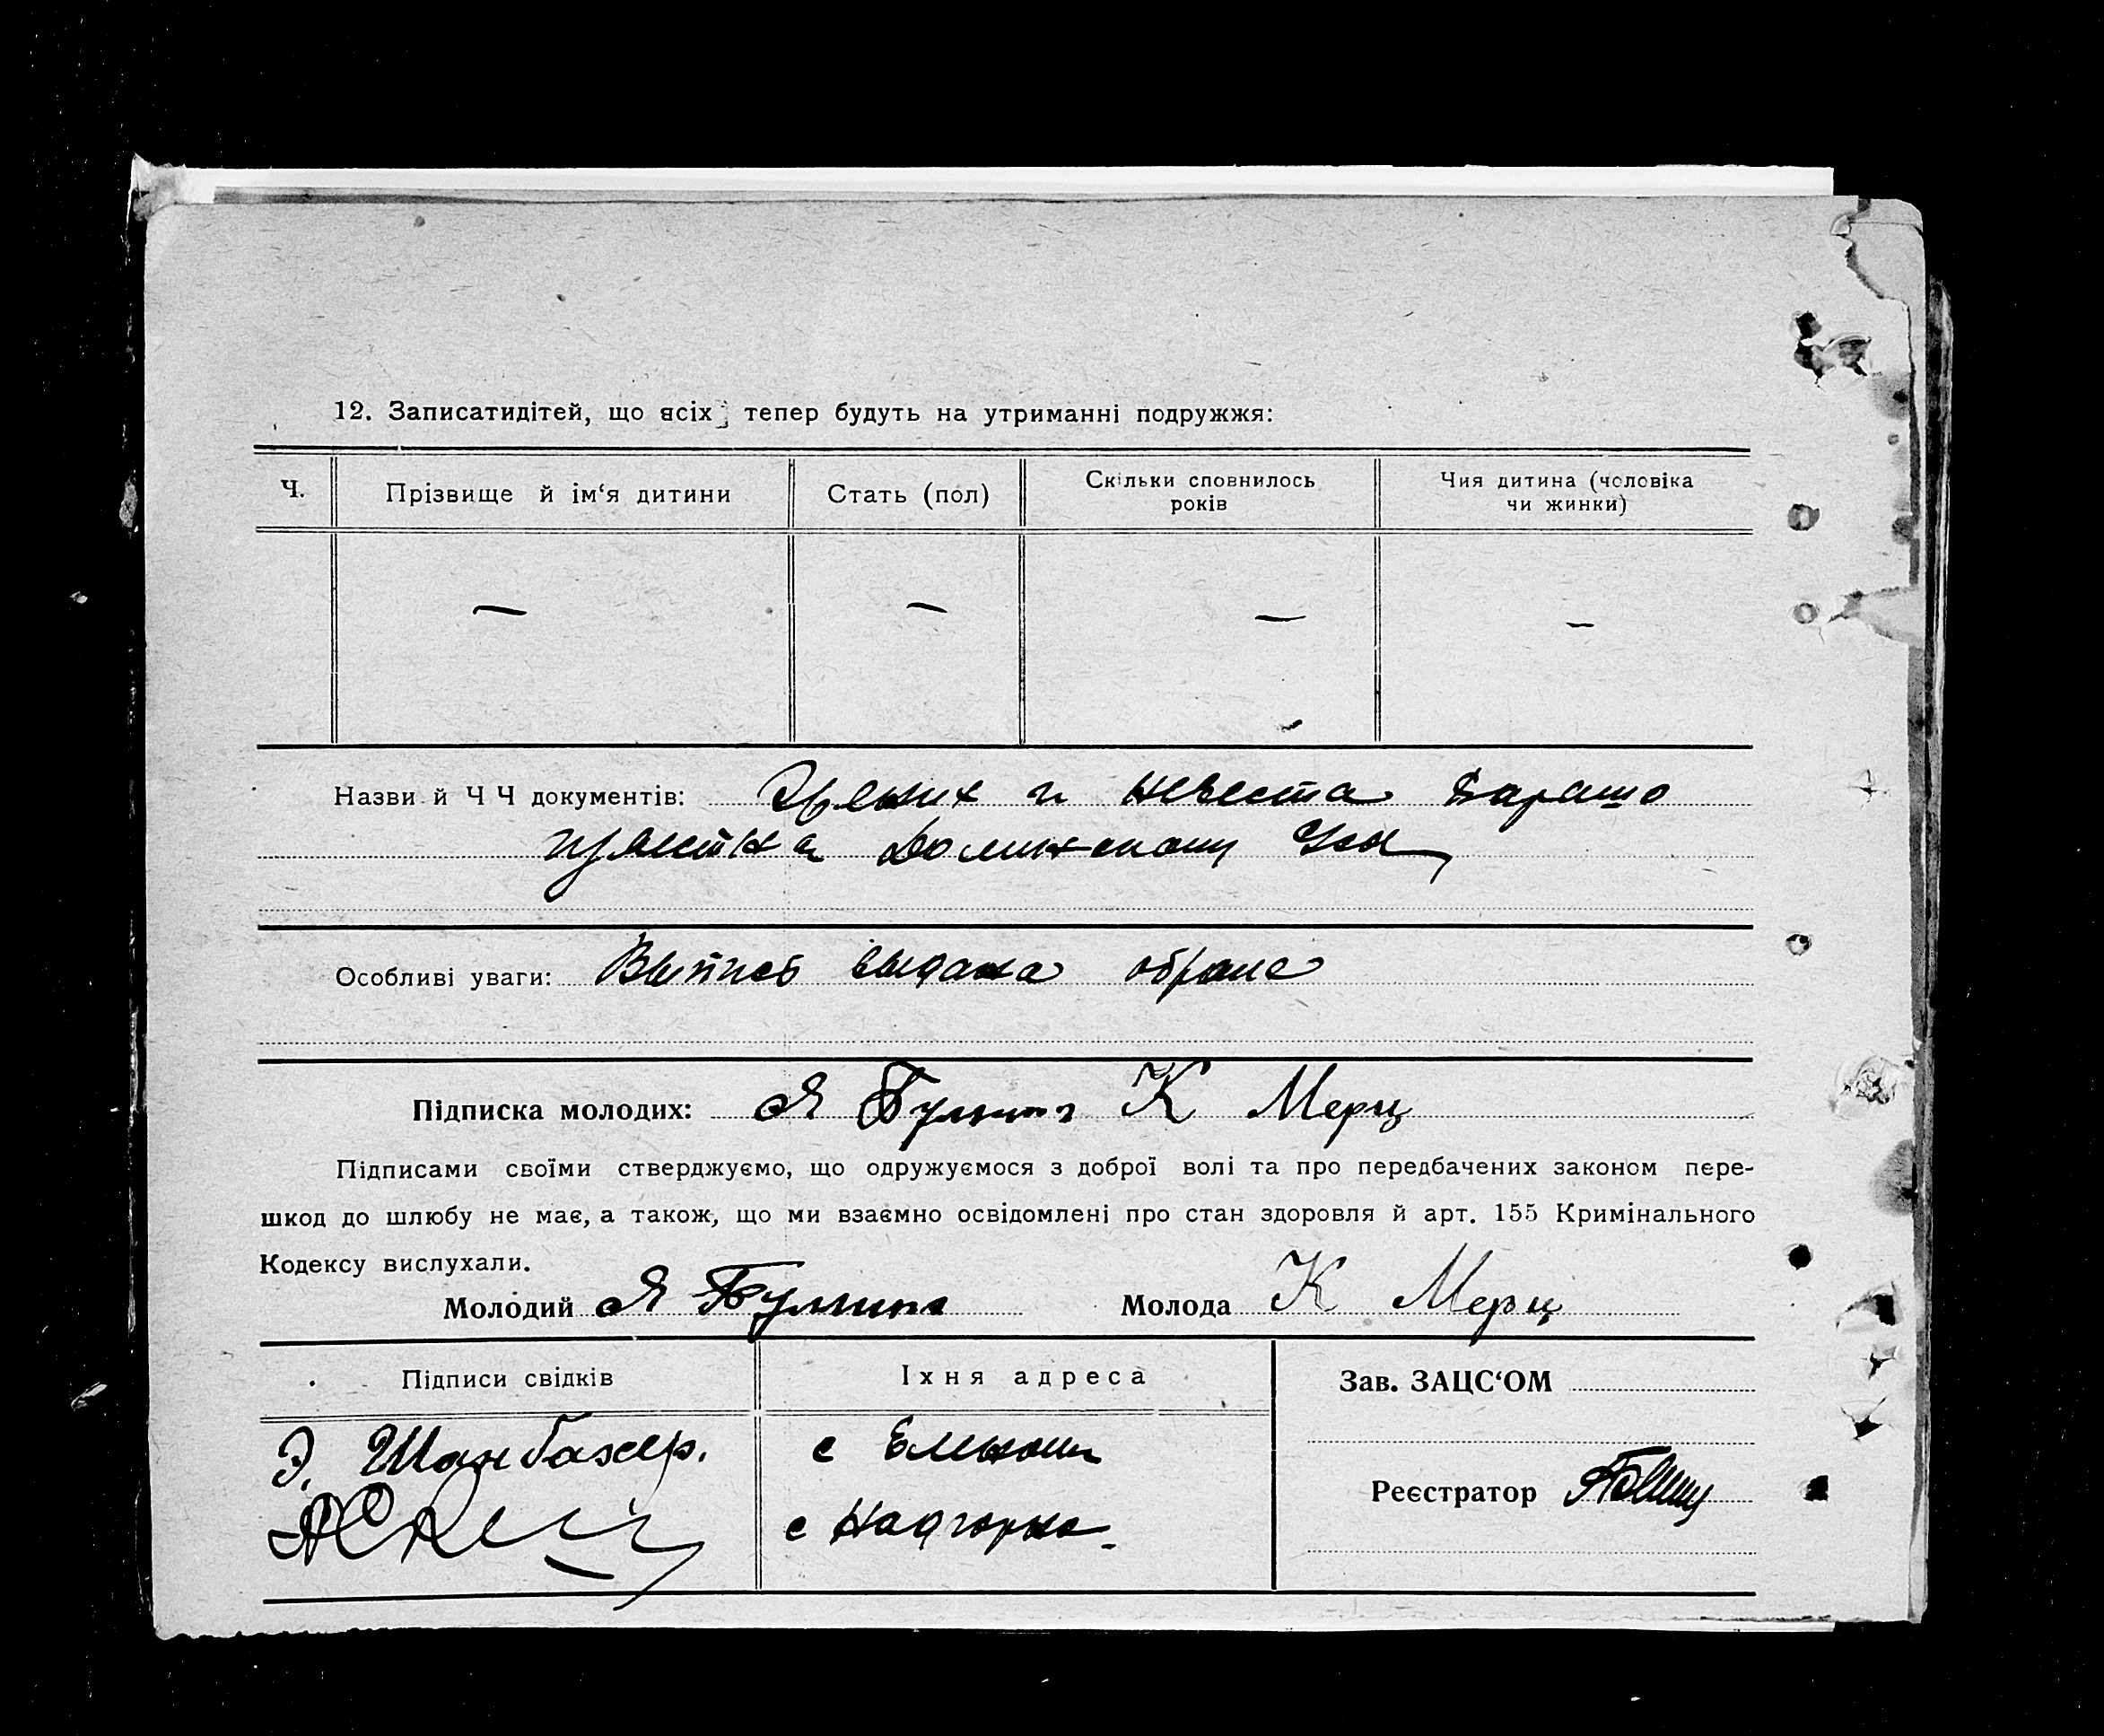 12. Записатидітей, що всіх тепер будуть на утриманні подружжя:
Ч.
Прізвище й ім‘я дитини
Стать (пол)
Скільки сповнилось
років
Чия дитина (чоловіка
чи жинки)
— — — —
Назви й Ч Ч документів: и невеста
Особливі уваги: Выпись выдана
Підписка молодих: Я К Мерц
Підписами своїми стверджуємо, що одружуємося з доброї волі та про передбачених законом пере-
шкод до шлюбу не має, а також, що ми взаємно освідомлені про стан здоровля й арт. 155 Кримінального
Кодексу вислухали.
Молодий Я Молода К Мерц
Підписи свідків
Іхня адреса
Зав. ЗАЦС‘ОМ
Э. Шанбахер.
с
Реєстратор
с Надгорное